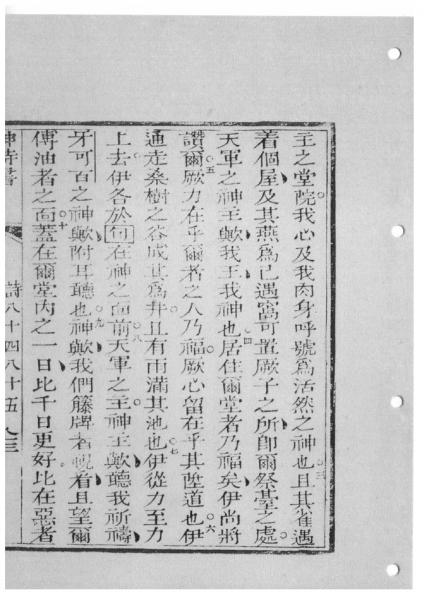 主之堂院我心及我肉身呼號爲活然之神也三且其雀遇
着個屋及其燕爲已遇窩可置厥子之所卽爾祭臺之處
天軍之神主歟我王我神也四居住爾堂者乃福矣伊尚將
讚爾五厥力在乎爾者之人乃福厥心留在乎其陞道也六伊
通走桑樹之谷成其爲井且有雨滿其池也七伊從力至力
上去伊各於[句]在神之面前八天軍之主神主歟聽我祈禱
牙可百之神歟附耳聽也九神歟我們籐牌者覩着且望爾
傅油者之面十蓋在爾堂內之一日比千日更好比在惡者
神詩書 詩八十四八十五